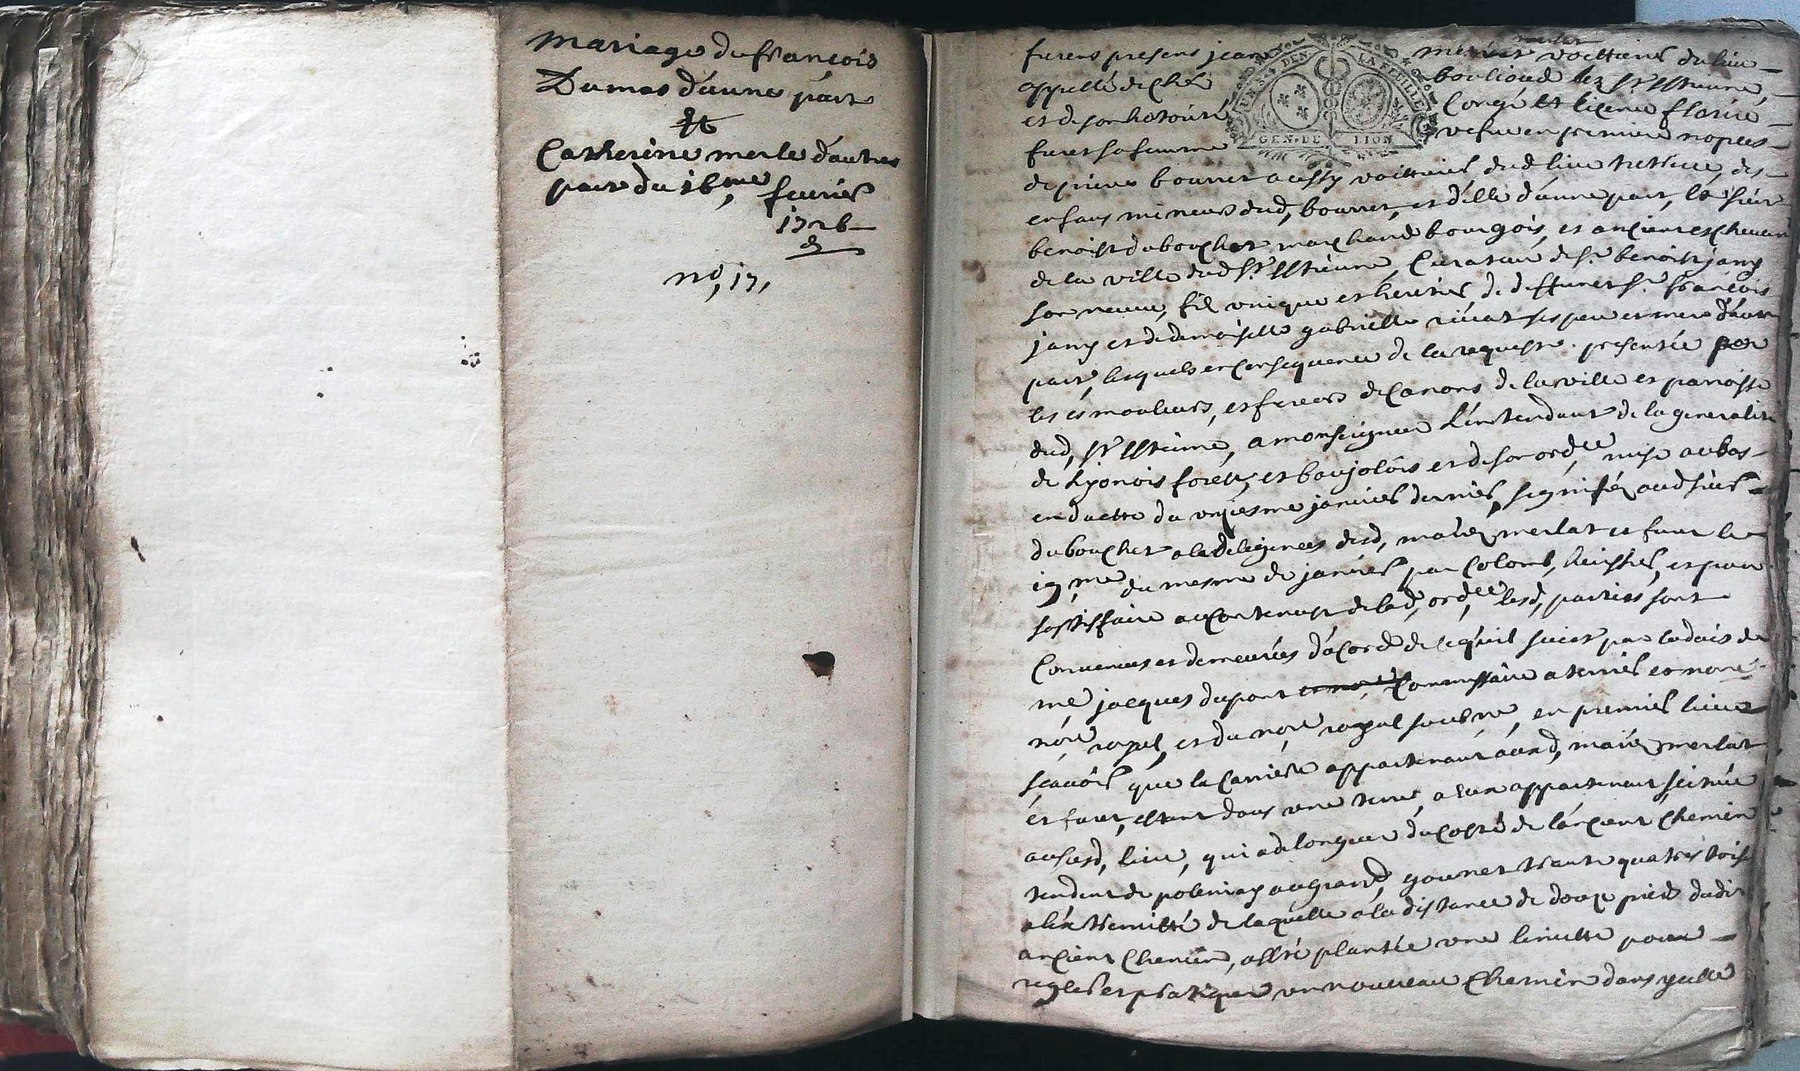 mariage du françois
Dumas d'aune part
Et
Catherine merle d'autres
part du 16,me feurier
1726
no, 17,
furens presens jean merlat voitturier du lieu
appellé de Ché boulioud lez St Estienne,
et de son hotorité Congé et licence florie
furet sa femme vefue en premiere nopces
de pierre bourret aussy voitturier, dud, lieu tuttrice, des
enfans mineurs dud, bourret, et d'elle d'aune part, le sieur
benoist dubouchet marchand bourgois, et ancient escheuin
de la ville dud St Estienne, Curateur de sr benoist jamy
son neueu, fil vnique et heritier, de deffunct sr françois
jamy et de demoiselle gabrielle riuat ses pere et mere d'autre
part, lesquels en Consequence de la requeste presentée par
les esmouleurs, et foreurs de Canons de la ville et parroisse
dud, St Estienne, a monseigneur L'intendant de la generalité
de Lyonois forests, et baujolois et de son ordce mise au bas
en datte du janvier dernier, signifée aud sieur
dubouchet a la deligences desd, mariez merlat et furet le
19 me du mesme de janvier par Colomb, huissier, et pour
sattisfaire au Contenust de lad, ordce, lesd, parties sont
Conuenues et demeurées d'acord de ce qu'il suict par l'aduis de
me jacques dupont Commissaire a terrier et nore
nore royal, et du nore royal soubsné, en premier lieu
scauoir que la Carriere appartenant auxd, mariez merlat
et furet, estant dans vne terre, a eux appartenant scituée
aususd, lieu, qui a de longueur du Costé de l'ancient Chemin
tendent de polignay au grand, gournet trante quatre toise
a l'extremitté de laquelle a la distance de douze pieds dudit
ancient Chemin, esté plantée vne limitte pour
regler et pratiquer vn nouueau Chemin dans ycelle
UN S. DEN LA FEUILLE
GEN. DE LION